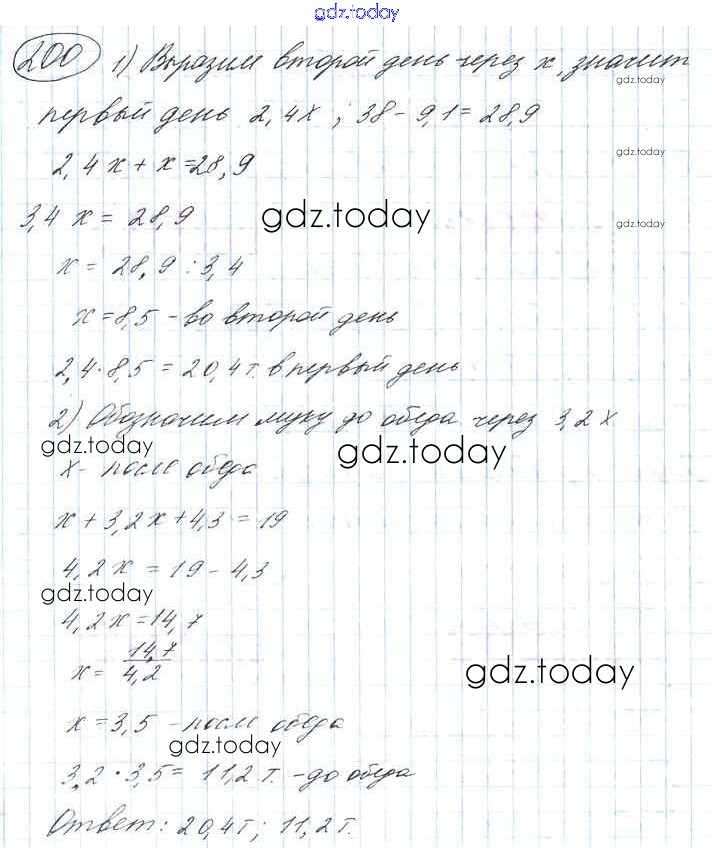 gdz.today
200 1) Выразим второй день через x, значит
gdz.today
первый день 2,4x ; 38 - 9,1 = 28,9
2,4x + x = 28,9
gdz.today
3,4 x = 28,9
gdz.today
gdz.today
x = 28,9 : 3,4
x = 8,5 - во второй день
2,4 · 8,5 = 20,4 т. в первый день
2) Обозначим муку до обеда через 3,2 x
gdz.today
gdz.today
x - после обеда
x + 3,2x + 4,3 = 19
4,2 x = 19 - 4,3
gdz.today
4,2x = 14,7
x = 14,7/4,2
gdz.today
x = 3,5 - после обеда
gdz.today
3,2 · 3,5 = 11,2 т. - до обеда
Ответ: 20,4т; 11,2т.